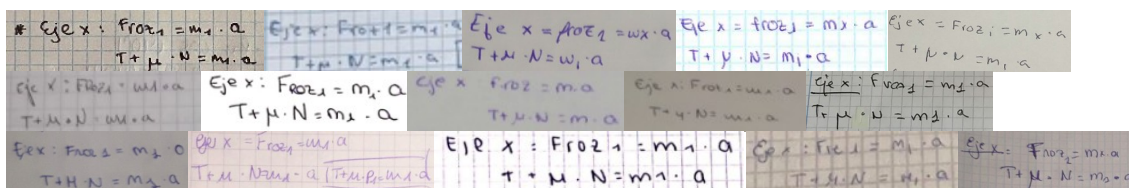 * Eje x: Froz1 = m1 · a
T + μ · N = m1 · a
Eje x: Fro+1 = m1 · a
T + μ · N = m1 · a
Eje x = froz1 = wx · a
T + μ · N = w1 · a
Eje x = froz1 = mx · a
T + μ · N = m1 · a
Eje x = Froz1 = mx · a
T + μ · N = m1 · a
Eje x: Froz · m1 · a
T + μ · N · m1 · a
Eje x: Froz1 = m1 · a
T + μ · N = m1 · a
Eje x froz = m · a
T + μ · N = m · a
Eje x: Froz1 = m1 · a
T + μ · N = m1 · a
Eje x: Froz1 = m1 · a
T + μ · N = m1 · a
Eje x: Froz1 = m1 · 0
T + μ · N = m1 · a
Eje x = Froz1 = m1 · a
T + μ · N = m1 · a
Eje x: Froz1 = m1 · a
T + μ · N = m1 · a
Eje x: = m1 · a
T + μ · N = m1 · a
Eje x: Froz1 = m1 · a
T + μ · N = m2 · a